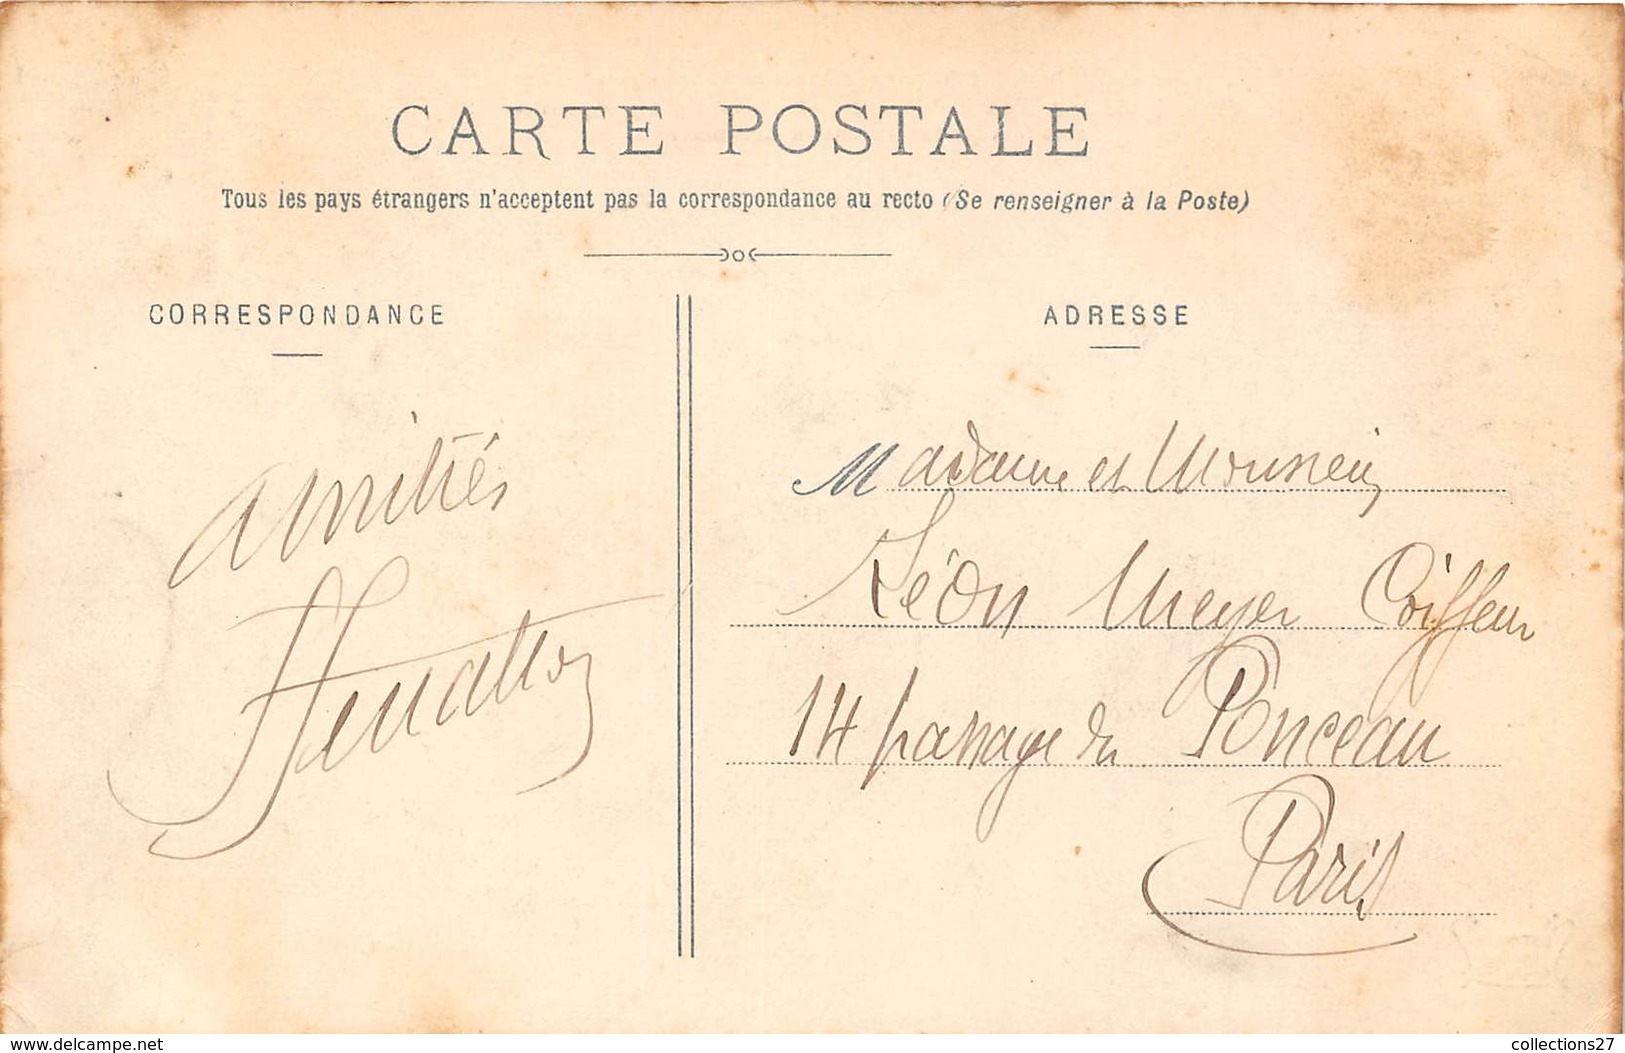 CARTE POSTALE
Tous les pays étrangers n'acceptent pas la correspondance au recto (Se renseigner à la Poste)
CORRESPONDANCE
amitiés
ADRESSE
Madame et Monsieur
Léon Meyer Coiffeur
14 passage du Ponceau
Paris
www.delcampe.net
collections27